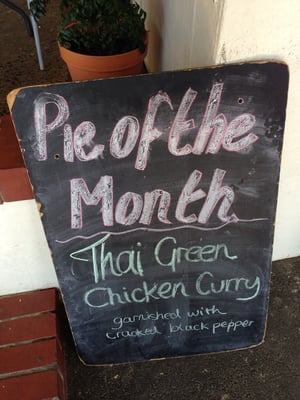 Pie of the
Month
Thai Green
Chicken Curry
garnished with
cracked black pepper